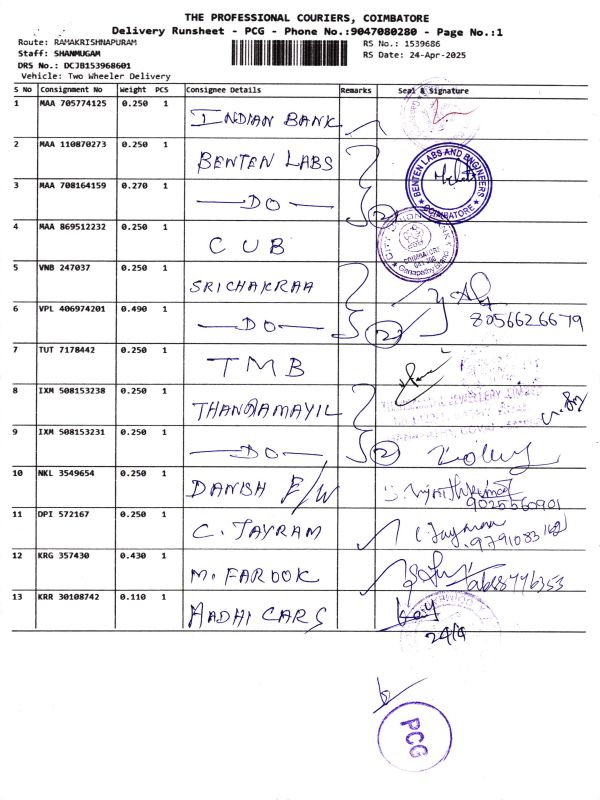 THE PROFESSIONAL COURIERS, COIMBATORE
Delivery Runsheet - PCG - Phone No.:9047080280 - Page No.:1
Route: RAMAKRISHNAPURAM
Staff: SHANMUGAM
DRS No.: DCJB153968601
Vehicle: Two Wheeler Delivery
RS No.: 1539686
RS Date: 24-Apr-2025
S No Consignment No Weight PCS Consignee Details Remarks Seal & Signature
1 MAA 705774125 0.250 1 INDIAN BANK
2 MAA 110870273 0.250 1 BENTEN LABS
BENTEN LABS AND ENGINEERS
COIMBATORE
3 MAA 708164159 0.270 1 —DO— 2
4 MAA 869512232 0.250 1 CUB
COIMBATORE
5 VNB 247037 0.250 1 SRICHAKRAA
6 VPL 406974201 0.490 1 —DO— 2 8056626679
7 TUT 7178442 0.250 1 TMB
8 IXM 508153238 0.250 1 THANGAMAYIL
9 IXM 508153231 0.250 1 —DO— 2
10 NKL 3549654 0.250 1 DANISH F/W
9025560901
11 DPI 572167 0.250 1 C. JAYRAM C. Jayram
12 KRG 357430 0.430 1 M. FAROOK
13 KRR 30108742 0.110 1 AADHI CARS
24/4
PCG